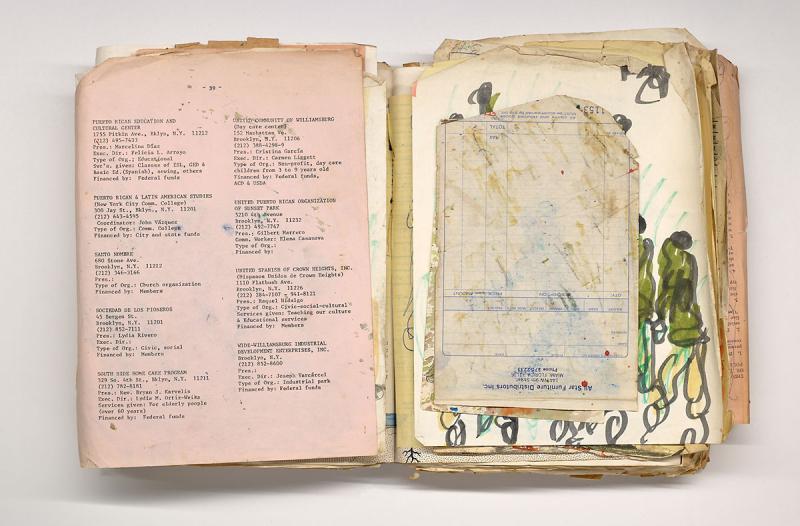 - 39 -
PUERTO RICAN EDUCATION AND
CULTURAL CENTER
1755 Pitkin Ave., Bklyn, N.Y. 11212
(212) 495-7433
Pres.: Marcelina Díaz
Exec. Dir.: Felicia L. Arroyo
Type of Org.: Educational
Svc's. given: Classes of ESL, GED &
Basic Ed.(Spanish), sewing, others
Financed by: Federal funds
PUERTO RICAN & LATIN AMERICAN STUDIES
(New York City Comm. College)
300 Jay St., Bklyn, N.Y. 11201
(212) 643-4595
Coordinator: John Vázquez
Type of Org.: Comm. College
Financed by: City and state funds
SANTO NOMBRE
680 Stone Ave.
Brooklyn, N.Y. 11212
(212) 346-3166
Pres.:
Type of Org.: Church organization
Financed by: Members
SOCIEDAD DE LOS PIONEROS
45 Bergen St.
Brooklyn, N.Y. 11201
(212) 852-7111
Pres.: Lydia Rivero
Exec. Dir.:
Type of Org.: Civic, social
Financed by: Members
SOUTH SIDE HOME CARE PROGRAM
329 So. 4th St., Bklyn, N.Y. 11211
(212) 782-8181
Pres.: Rev. Bryan J. Karvelis
Exec. Dir.: Lydia M. Ortiz-Weiks
Services given: For elderly people
(over 60 years)
Financed by: Federal funds
UNITED COMMUNITY OF WILLIAMSBURG
(Day care center)
152 Manhattan Av.
Brooklyn, N.Y. 11206
(212) 388-4298-9
Pres.: Cristina García
Exec. Dir.: Carmen Liggett
Type of Org.: Non-profit, day care
children from 3 to 9 years old
Financed by: Federal funds,
ACD & USDA
UNITED PUERTO RICAN ORGANIZATION
OF SUNSET PARK
5210 4th Avenue
Brooklyn, N.Y. 11232
(212) 492-7747
Pres.: Gilbert Marrero
Comm. Worker: Elena Casanova
Type of Org.:
Financed by:
UNITED SPANISH OF CROWN HEIGHTS, INC.
(Hispanos Unidos de Crown Heights)
1110 Flatbush Ave.
Brooklyn, N.Y. 11226
(212) 284-7107 - 941-8121
Pres.: Raquel Hidalgo
Type of Org.: Civic-social-cultural
Services given: Teaching our culture
& Educational services
Financed by: Members
WIDE-WILLIAMSBURG INDUSTRIAL
DEVELOPMENT ENTERPRISES, INC.
Brooklyn, N.Y.
(212) 852-8600
Pres.:
Exec. Dir.: Joseph Vancárcel
Type of Org.: Industrial park
Financed by: Federal funds
All Star Furniture Distributors Inc.
MIAMI, FLORIDA
QTY.
DESCRIPTION
PRICE
AMOUNT
TAX
TOTAL
1153